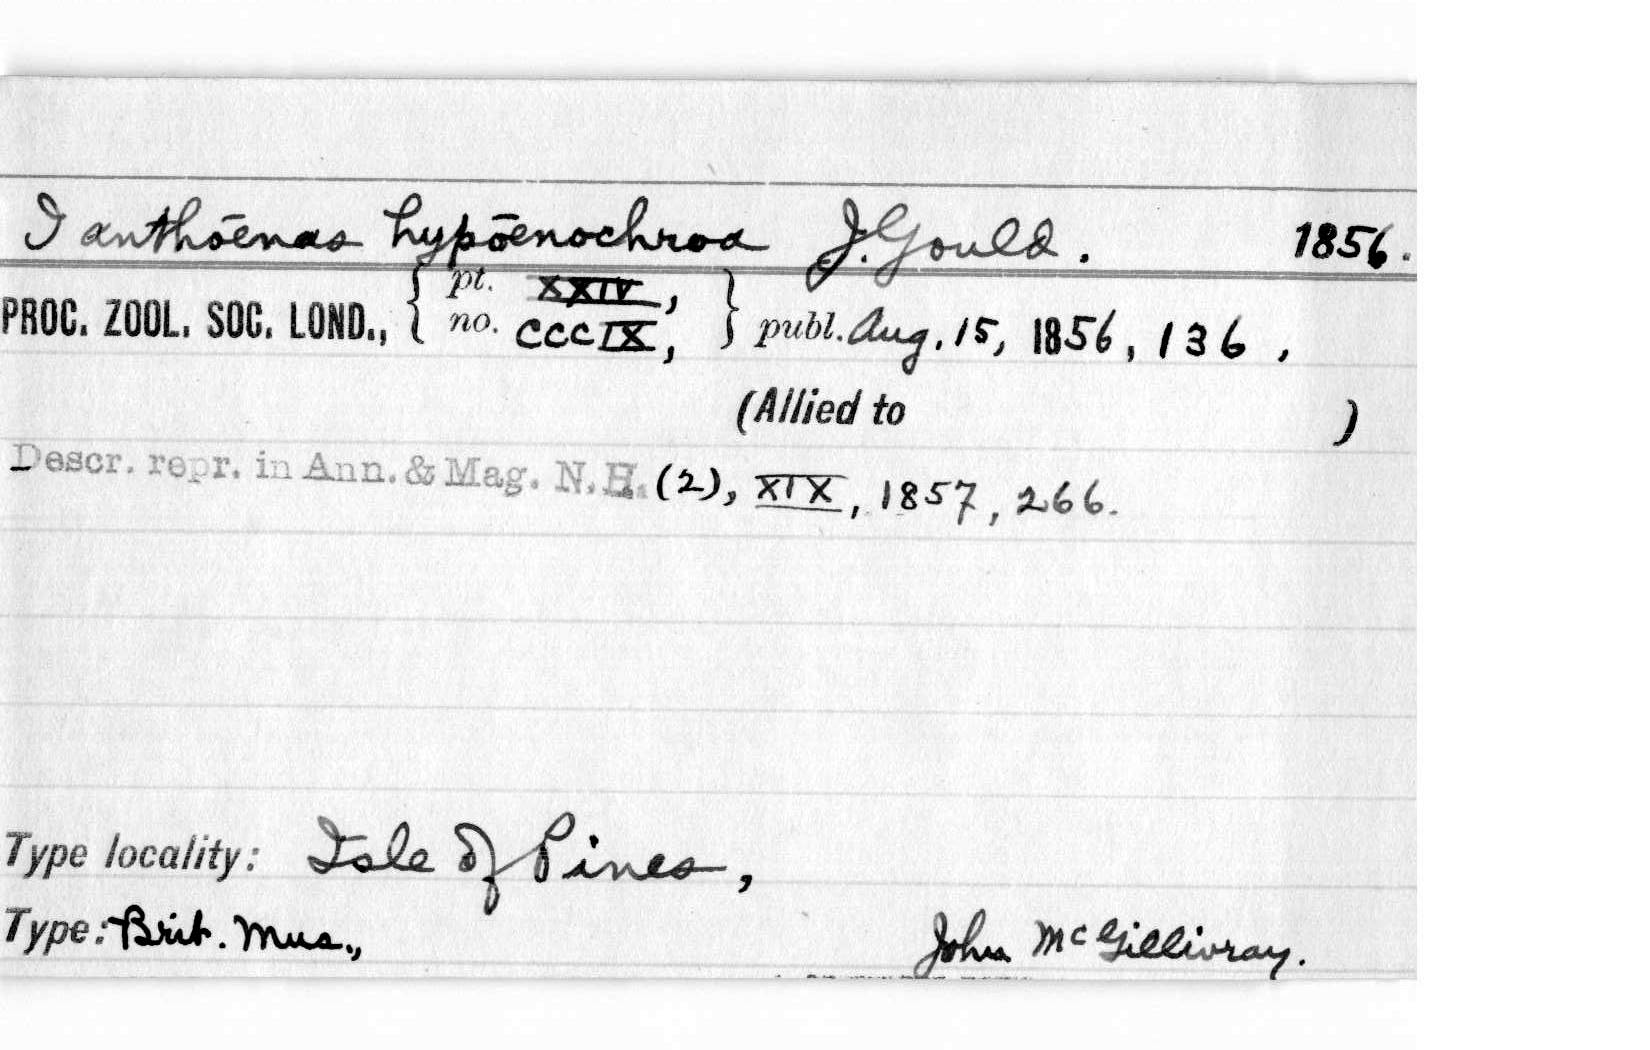 Ianthōenas hypōenochroa J. Gould. 1856.
PROC. ZOOL. SOC. LOND., { pt. XXIV, no. CCCIX, } publ. Aug. 15, 1856, 136,
(Allied to )
Descr. repr. in Ann. & Mag. N.H. (2), XIX, 1857, 266.
Type locality: Isle of Pines,
Type: Brit. Mus., John McGillivray.